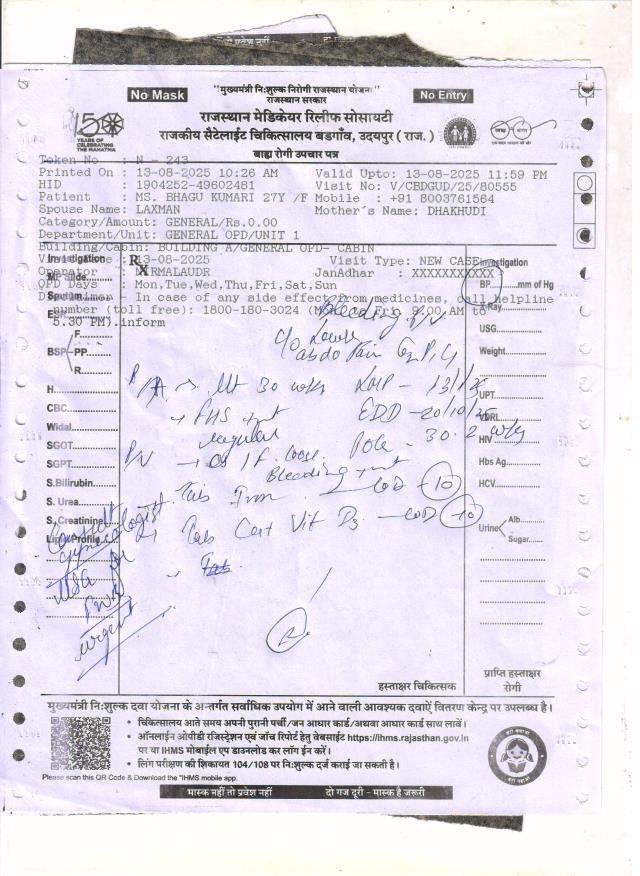 No Mask
"मुख्यमंत्री निःशुल्क निरोगी राजस्थान योजना"
राजस्थान सरकार
No Entry
राजस्थान मेडिकेयर रिलीफ सोसायटी
राजकीय सैटेलाईट चिकित्सालय बडगाँव, उदयपुर ( राज. )
बाह्य रोगी उपचार पत्र
YEARS OF CELEBRATING THE MAHATMA
Token No : N - 243
Printed On : 13-08-2025 10:26 AM Valid Upto: 13-08-2025 11:59 PM
HID : 1904252-49602481 Visit No: V/CBDGUD/25/80555
Patient : MS. BHAGU KUMARI 27Y /F Mobile : +91 8003761564
Spouse Name: LAXMAN Mother's Name: DHAKHUDI
Category/Amount: GENERAL/Rs.0.00
Department/Unit: GENERAL OPD/UNIT 1
Building/Cabin: BUILDING A/GENERAL OPD- CABIN
13-08-2025 Visit Type: NEW CASE
Operator : NIRMALAUDR JanAdhar : XXXXXXXXXXX
OPD Days : Mon,Tue,Wed,Thu,Fri,Sat,Sun
In case of any side effect from medicines, call helpline
number (toll free): 1800-180-3024 (Mon to Fri 9.00 AM to
5.30 PM).inform
Investigation
Rx
Investigation
BP mm of Hg
X-Ray
USG
Weight
UPT
VDRL
HIV
Hbs Ag
HCV
Urine Alb
Sugar
Sputum
BSP F
PP
R
H
CBC
Widal
SGOT
SGPT
S.Bilirubin
S. Urea
S. Creatinine
Lipid Profile
Bleeding P/V
c/o Lower
abdo Pain
P/A Ut 30 wks LMP - 13/1/25
FHS EDD - 20/10/25
regular POG - 30.2 wks
P/V → os 1 F. loose
Bleeding
Tab Iron OD 10
Tab Cart Vit D3 OD 10
Tab
Consult
gynecologist
USG
urgent
हस्ताक्षर चिकित्सक
प्राप्ति हस्ताक्षर
रोगी
मुख्यमंत्री निःशुल्क दवा योजना के अन्तर्गत सर्वाधिक उपयोग में आने वाली आवश्यक दवाऐं वितरण केन्द्र पर उपलब्ध है।
• चिकित्सालय आते समय अपनी पुरानी पर्ची/जन आधार कार्ड/अथवा आधार कार्ड साथ लावें।
• ऑनलाईन ओपीडी रजिस्ट्रेशन एवं जॉंच रिपोर्ट हेतु वेबसाईट https://ihms.rajasthan.gov.in
पर या IHMS मोबाईल एप डाउनलोड कर लॉग ईन करें।
• लिंग परीक्षण की शिकायत 104/108 पर निःशुल्क दर्ज कराई जा सकती है।
Please scan this QR Code & Download the "IHMS mobile app.
मास्क नहीं तो प्रवेश नहीं दो गज दूरी - मास्क है जरूरी